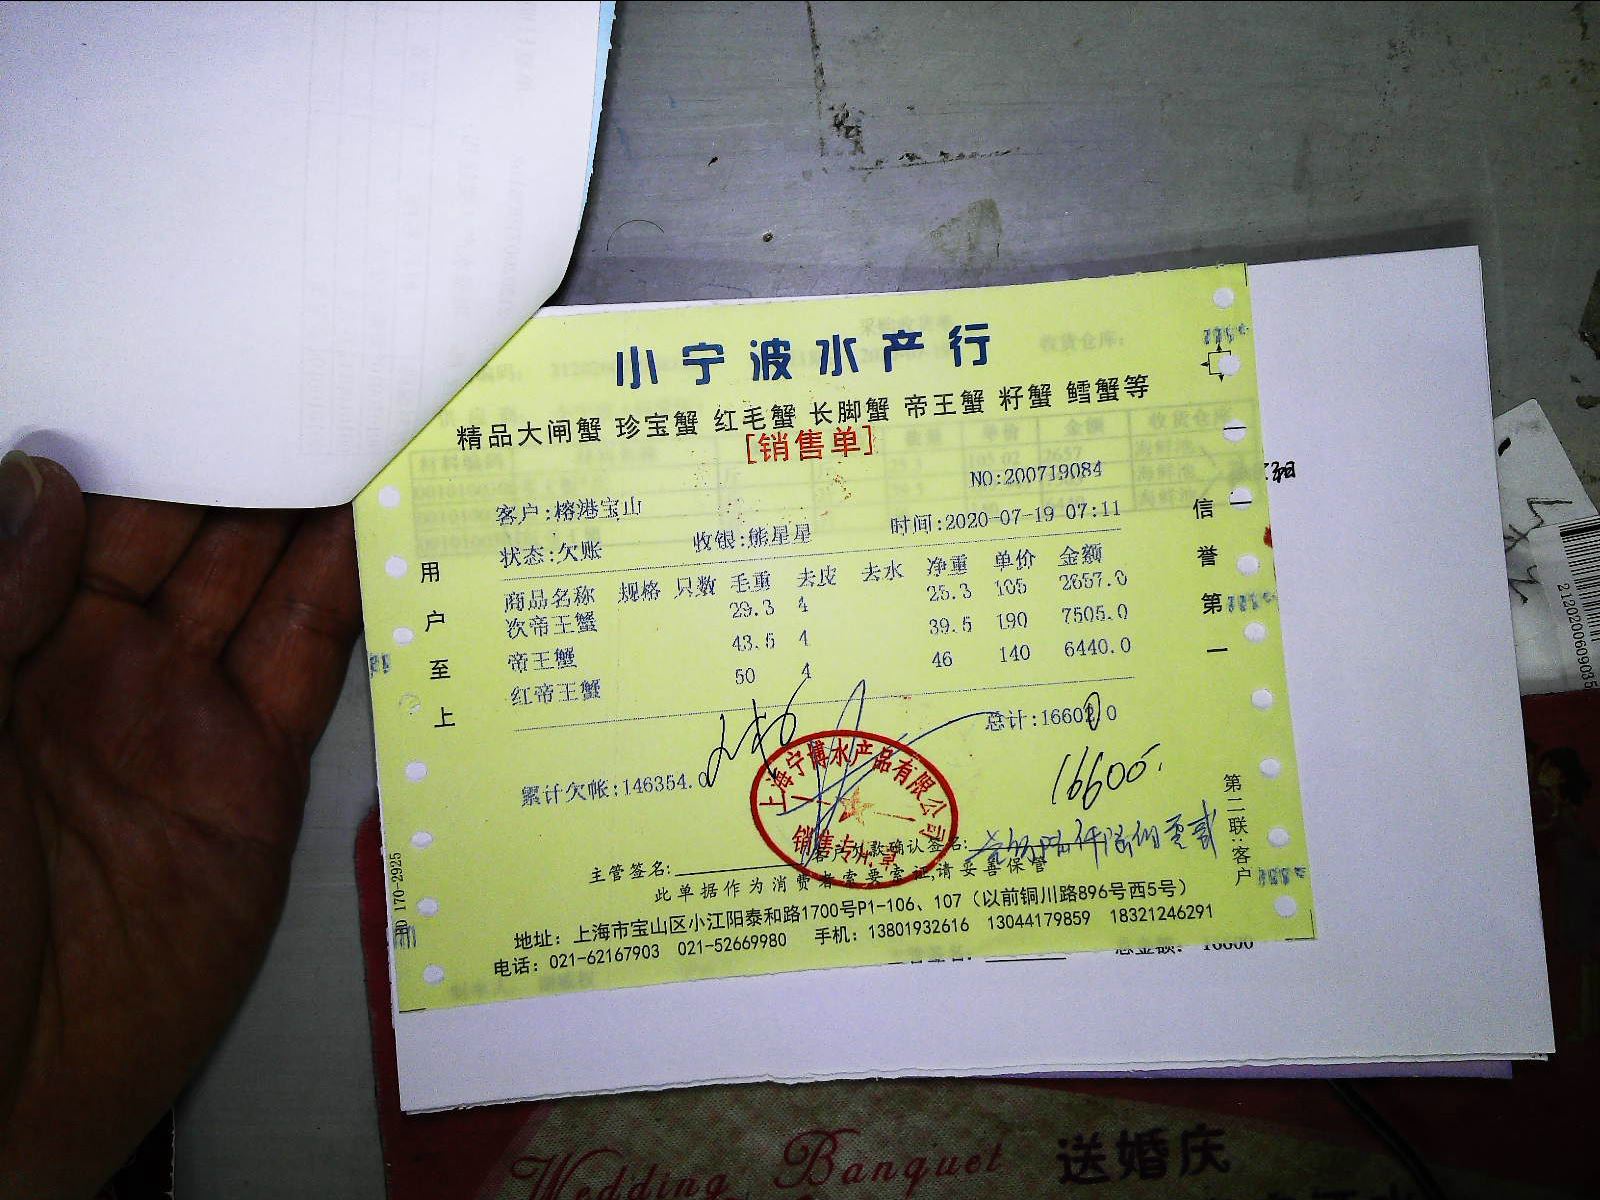 小宁波水产行
精品大闸蟹 珍宝蟹 红毛蟹 长脚蟹 帝王蟹 籽蟹 鳕蟹等
[销售单]
NO:200719084
客户:榕港宝山
状态:欠账 收银:熊星星 时间:2020-07-19 07:11
商品名称 规格 只数 毛重 去皮 去水 净重 单价 金额
次帝王蟹 29.3 4 25.3 105 2657.0
帝王蟹 43.5 4 39.5 190 7505.0
红帝王蟹 50 4 46 140 6440.0
总计:16602.0
累计欠帐:146354.0
16600
上海宁博水产品有限公司
销售专用章
主管签名: 客户欠款确认签名:
此单据作为消费者索要索证,请妥善保管
地址：上海市宝山区小江阳泰和路1700号P1-106、107（以前铜川路896号西5号）
电话：021-62167903 021-52669980 手机：13801932616 13044179859 18321246291
用户至上
信誉第一
第二联:客户
170-2925
总金额: 16600
2120200609035
Wedding Banquet 送婚庆